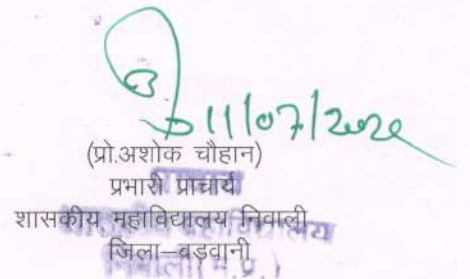 11/07/2020
(प्रो.अशोक चौहान)
प्रभारी प्राचार्य
शासकीय महाविद्यालय निवाली
जिला–बड़वानी